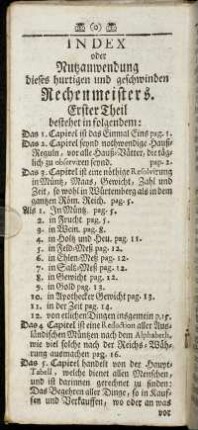 (o)
INDEX
oder
Nutzanwendung
dieses hurtigen und geschwinden
Rechenmeisters.
Erster Theil
bestehet in folgendem:
Das 1. Capitel ist das Einmal Eins pag. 1.
Das 2. Capitel seynd nothwendige Hauß-
Reguln, vor alle Hauß-Vätter, die täg-
lich zu observiren seynd. pag. 2.
Das 3. Capitel ist eine nöthige Resolvirung
in Müntz, Maas, Gewicht, Zahl und
Zeit, so wohl in Würtemberg als in dem
gantzen Röm. Reich. pag. 5.
Als 1. In Müntz. pag. 5.
2. in Frucht pag. 5.
3. in Wein. pag. 8.
4. in Holtz und Heu. pag. 11.
5. in Feld-Meß pag. 12.
6. in Ehlen-Meß pag. 12.
7. in Saltz-Meß pag. 12.
8. in Gewicht pag. 12.
9. in Gold pag. 13.
10. in Apothecker Gewicht pag. 13.
11. in der Zeit pag. 14.
12. von etlichen Dingen insgemein p. 15.
Das 4. Capitel ist eine Reduction aller Aus-
ländischen Müntzen nach dem Alphabeth,
wie viel solche nach der Reichs-Wäh-
rung ausmachen pag. 16.
Das 5. Capitel handelt von der Haupt-
Tabell, welche dienet allen Menschen,
und ist darinnen gerechnet zu finden:
Das Begehren aller Dinge, so in Kauf-
fen und Verkauffen, wo oder an was
vor